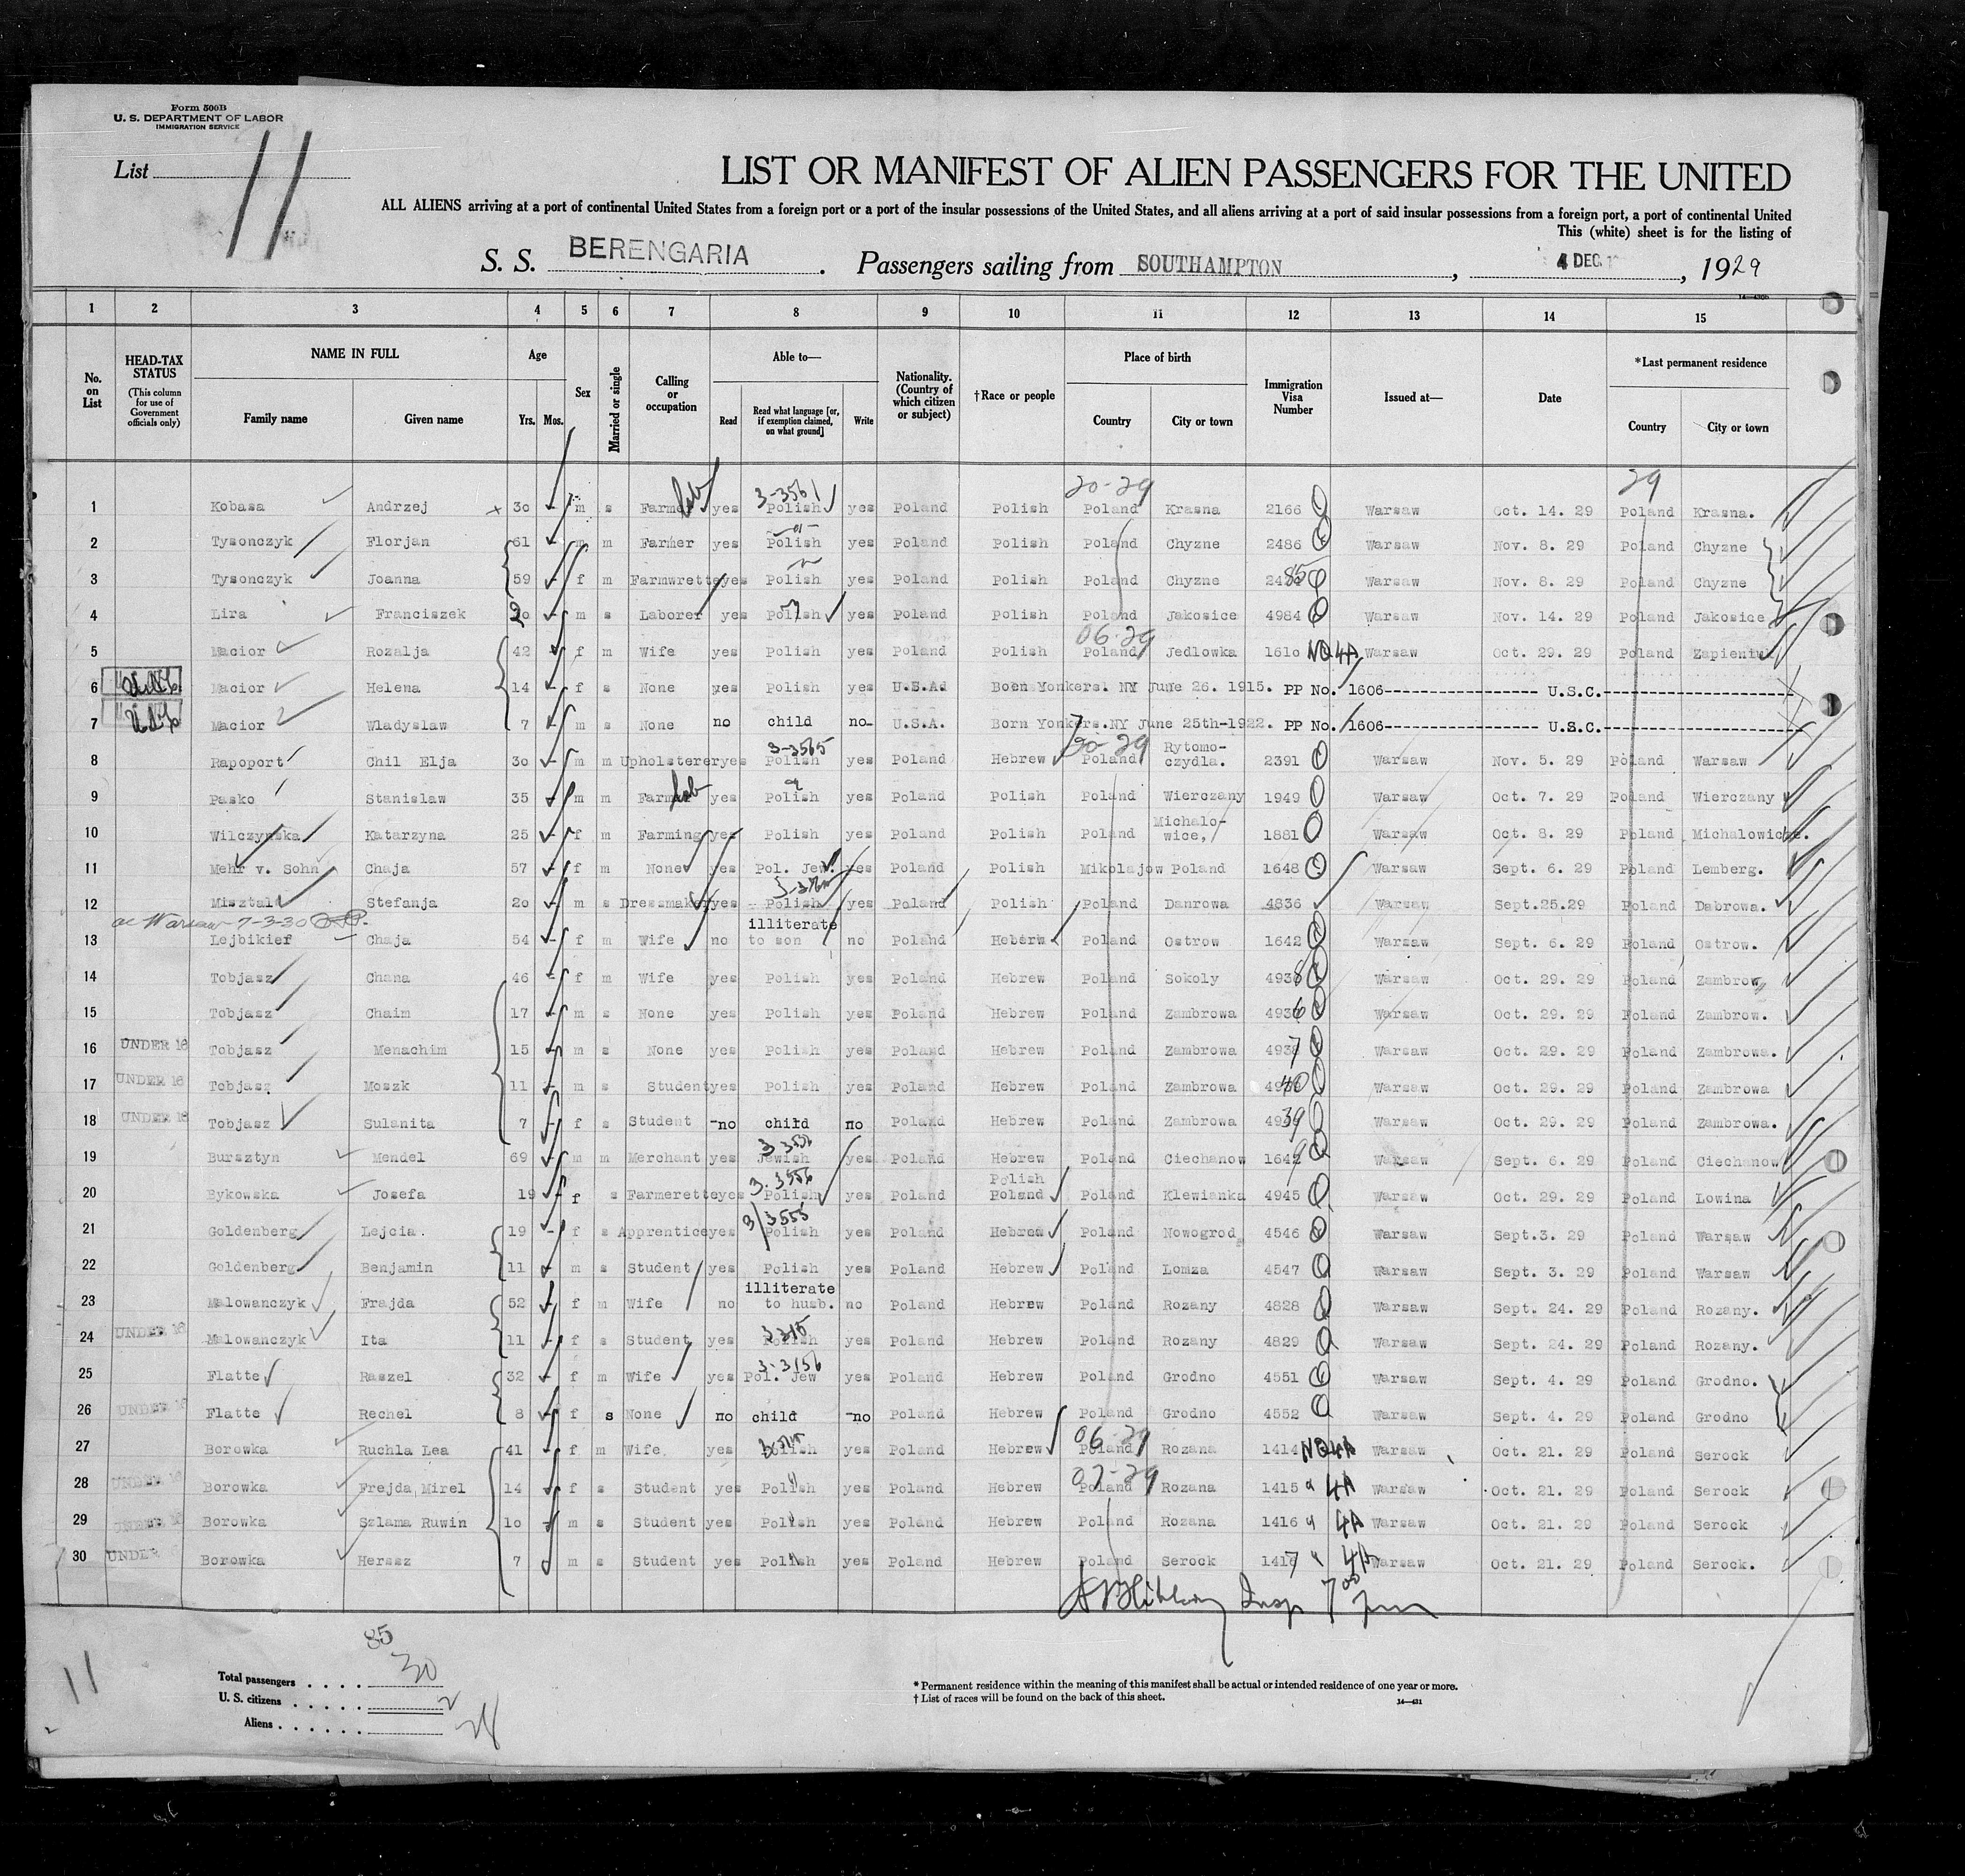 Form 500B
U. S. DEPARTMENT OF LABOR
IMMIGRATION SERVICE
List 11
LIST OR MANIFEST OF ALIEN PASSENGERS FOR THE UNITED
ALL ALIENS arriving at a port of continental United States from a foreign port or a port of the insular possessions of the United States, and all aliens arriving at a port of said insular possessions from a foreign port, a port of continental United
This (white) sheet is for the listing of
S. S. BERENGARIA. Passengers sailing from SOUTHAMPTON, 4 DEC, 1929
1 2 3 4 5 6 7 8 9 10 11 12 13 14 15
No. on List
HEAD-TAX STATUS (This column for use of Government officials only)
NAME IN FULL Family name Given name
Age Yrs. Mos.
Sex
Married or single
Calling or occupation
Able to— Read Read what language [or, if exemption claimed, on what ground] Write
Nationality. (Country of which citizen or subject)
†Race or people
Place of birth Country City or town
Immigration Visa Number
Issued at—
Date
*Last permanent residence Country City or town
20-29 29
1 Kobasa Andrzej 30 m s Farmer lab yes 3-3561 Polish yes Poland Polish Poland Krasna 2166 Warsaw Oct. 14. 29 Poland Krasna.
2 Tysonczyk Florjan 61 m m Farmer yes Polish yes Poland Polish Poland Chyzne 2486 Warsaw Nov. 8. 29 Poland Chyzne
3 Tysonczyk Joanna 59 f m Farmwrette yes Polish yes Poland Polish Poland Chyzne 2485 Warsaw Nov. 8. 29 Poland Chyzne
4 Lira Franciszek 20 m s Laborer yes Polish yes Poland Polish Poland Jakosice 4984 Warsaw Nov. 14. 29 Poland Jakosice
06-29
5 Macior Rozalja 42 f m Wife yes Polish yes Poland Polish Poland Jedlowka 1610 NQ4A Warsaw Oct. 29. 29 Poland Zapieniuk
6 Macior Helena 14 f s None yes Polish yes U.S.Ad Boen Yonkers. NY June 26. 1915. PP No. 1606 U.S.C.
7 Macior Wladyslaw 7 m s None no child no U.S.A. Born Yonkers.NY June 25th-1922. PP No. 1606 U.S.C.
20-29
8 Rapoport Chil Elja 30 m m Upholsterer yes 3-3565 Polish yes Poland Hebrew Poland Rytomo-czydla. 2391 Warsaw Nov. 5. 29 Poland Warsaw
9 Pasko Stanislaw 35 m m Farmer lab yes Polish yes Poland Polish Poland Wierczany 1949 Warsaw Oct. 7. 29 Poland Wierczany
10 Wilczynska Katarzyna 25 f m Farming yes Polish yes Poland Polish Poland Michalo-wice, 1881 Warsaw Oct. 8. 29 Poland Michalowicze.
11 Mehr v. Sohn Chaja 57 f m None yes Pol. Jew. yes Poland Polish Mikolajow Poland 1648 Warsaw Sept. 6. 29 Poland Lemberg.
12 Misztal Stefanja 20 m s Dressmaker yes Polish yes Poland Polish Poland Danrowa 4836 Warsaw Sept.25.29 Poland Dabrowa.
Warsaw 7-3-30
13 Lejbikief Chaja 54 f m Wife no illiterate to son no Poland Hebrew Poland Ostrow 1642 Warsaw Sept. 6. 29 Poland Ostrow.
14 Tobjasz Chana 46 f m Wife yes Polish yes Poland Hebrew Poland Sokoly 4938 Warsaw Oct. 29. 29 Poland Zambrow
15 Tobjasz Chaim 17 m s None yes Polish yes Poland Hebrew Poland Zambrowa 4936 Warsaw Oct. 29. 29 Poland Zambrow.
16 UNDER 16 Tobjasz Menachim 15 m s None yes Polish yes Poland Hebrew Poland Zambrowa 4937 Warsaw Oct. 29. 29 Poland Zambrowa.
17 UNDER 16 Tobjasz Moszk 11 m s Student yes Polish yes Poland Hebrew Poland Zambrowa 4940 Warsaw Oct. 29. 29 Poland Zambrowa
18 UNDER 16 Tobjasz Sulanita 7 f s Student no child no Poland Hebrew Poland Zambrowa 4939 Warsaw Oct. 29. 29 Poland Zambrowa.
19 Bursztyn Mendel 69 m m Merchant yes Jewish yes Poland Hebrew Poland Ciechanow 1642 Warsaw Sept. 6. 29 Poland Ciechanow
20 Bykowska Josefa 19 f s Farmerette yes 3-3556 Polish yes Poland Polish Poland Poland Klewianka 4945 Warsaw Oct. 29. 29 Poland Lowina
21 Goldenberg Lejcia. 19 f s Apprentice yes 3/3555 Polish yes Poland Hebrew Poland Nowogrod 4546 Warsaw Sept.3. 29 Poland Warsaw
22 Goldenberg Benjamin 11 m s Student yes Polish yes Poland Hebrew Poland Lomza 4547 Warsaw Sept. 3. 29 Poland Warsaw
23 Malowanczyk Frajda 52 f m Wife no illiterate to husb. no Poland Hebrew Poland Rozany 4828 Warsaw Sept. 24. 29 Poland Rozany.
24 UNDER 16 Malowanczyk Ita 11 f s Student yes Polish yes Poland Hebrew Poland Rozany 4829 Warsaw Sept. 24. 29 Poland Rozany.
25 Flatte Raszel 32 f m Wife yes 3-3156 Pol. Jew yes Poland Hebrew Poland Grodno 4551 Warsaw Sept. 4. 29 Poland Grodno.
26 UNDER 16 Flatte Rechel 8 f s None no child no Poland Hebrew Poland Grodno 4552 Warsaw Sept. 4. 29 Poland Grodno
06-29
27 Borowka Ruchla Lea 41 f m Wife yes Polish yes Poland Hebrew Poland Rozana 1414 NQ4A Warsaw Oct. 21. 29 Poland Serock
07-29
28 UNDER 16 Borowka Frejda Mirel 14 f s Student yes Polish yes Poland Hebrew Poland Rozana 1415 " 4A Warsaw Oct. 21. 29 Poland Serock
29 UNDER 16 Borowka Szlama Ruwin 10 m s Student yes Polish yes Poland Hebrew Poland Rozana 1416 " 4A Warsaw Oct. 21. 29 Poland Serock
30 UNDER Borowka Herssz 7 m s Student yes Polish yes Poland Hebrew Poland Serock 1417 " 4A Warsaw Oct. 21. 29 Poland Serock.
Insp 7 00 pm
85
11
Total passengers 30
U. S. citizens 2
Aliens 28
* Permanent residence within the meaning of this manifest shall be actual or intended residence of one year or more.
† List of races will be found on the back of this sheet.
14—431